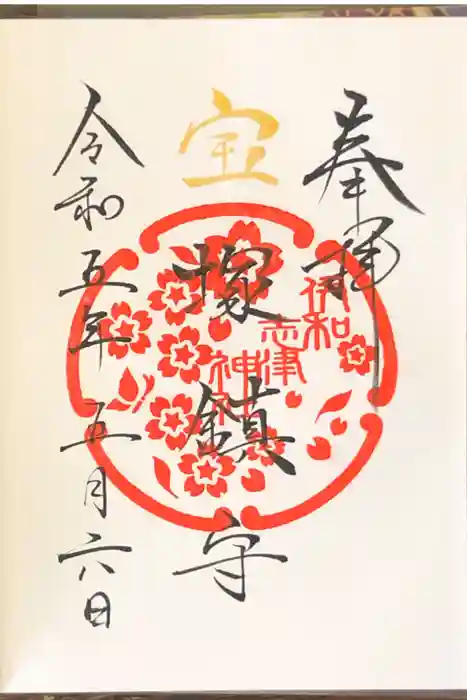 奉拝
伊和
志津
神社
宝塚鎮守
令和五年五月六日